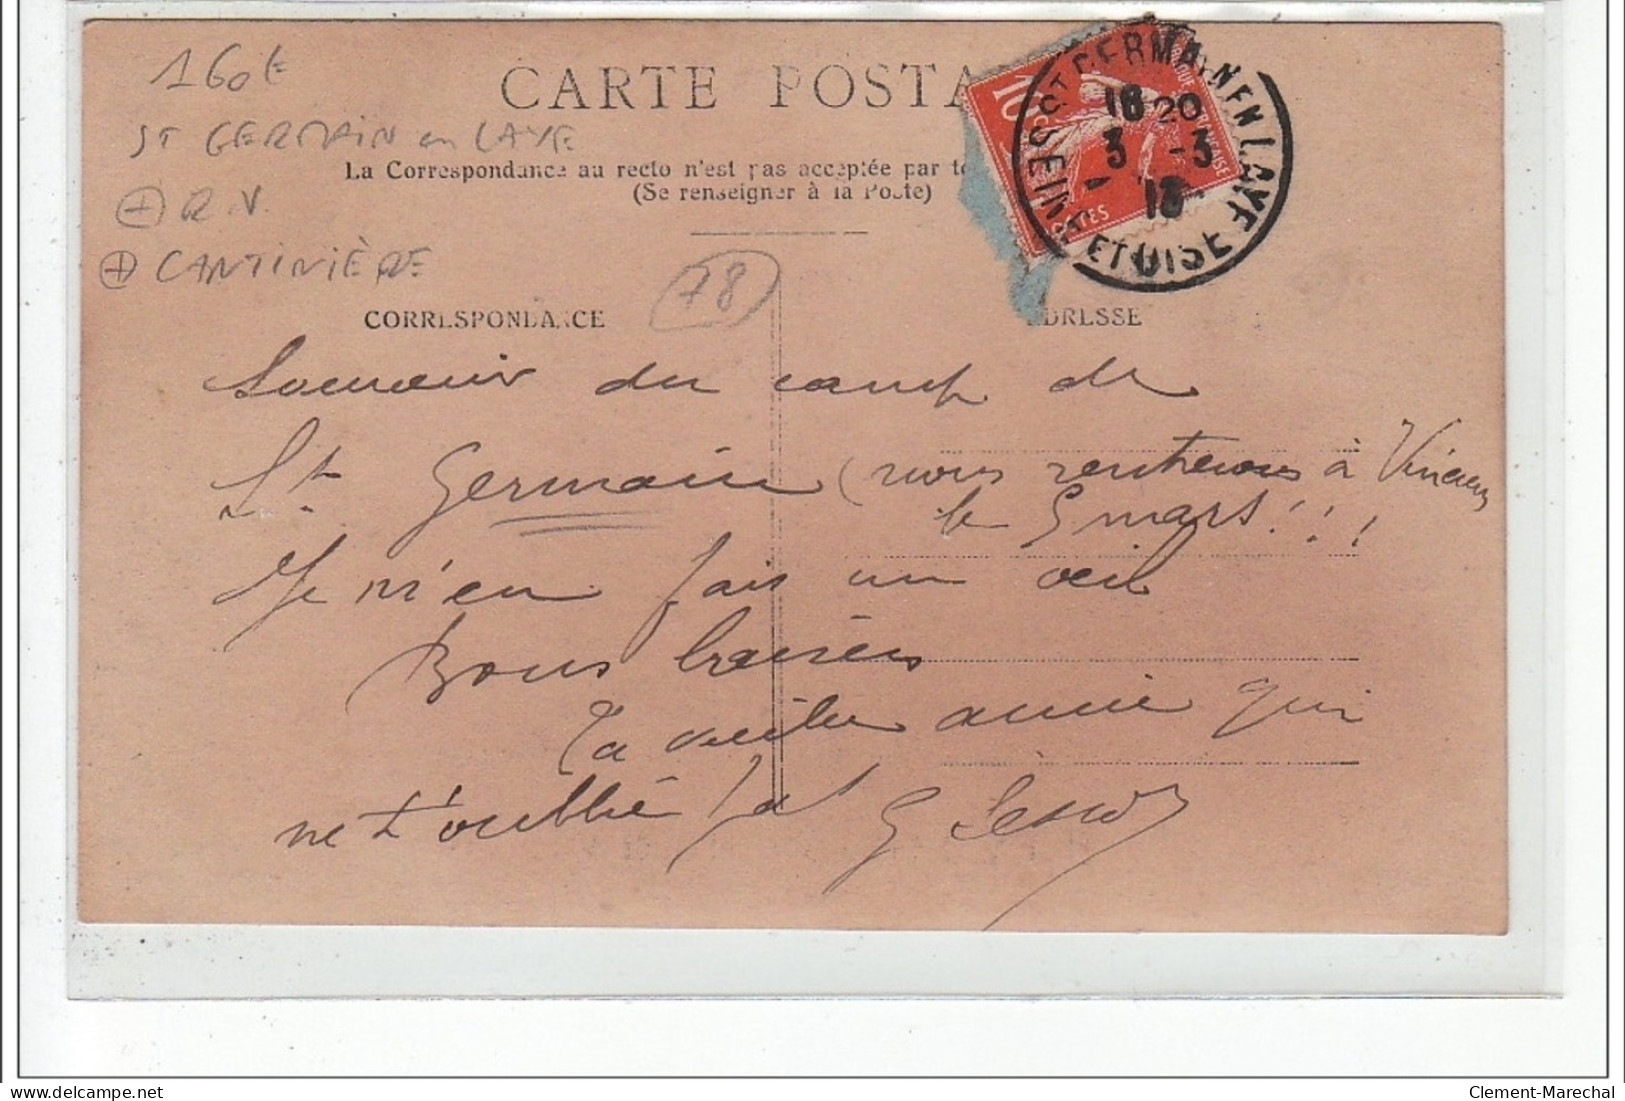 160€
ST GERMAIN en LAYE
+ R.V.
+ CANTINIÈRE
78
CARTE POSTA
La Correspondance au recto n'est pas acceptée par to
(Se renseigner à la Poste)
CORRESPONDANCE
ADRESSE
10
POSTES
ST GERMAIN EN LAYE
SEINE ET OISE
18 20
3 - 3
13
Souvenir du camp de
St Germain (nous rentrerons à
le 5 mars!!!
Je m'en fais un oeil
Bons baisers
Ta vieille amie qui
ne t'oublie pas G
delcampe.net
Clement-Marechal